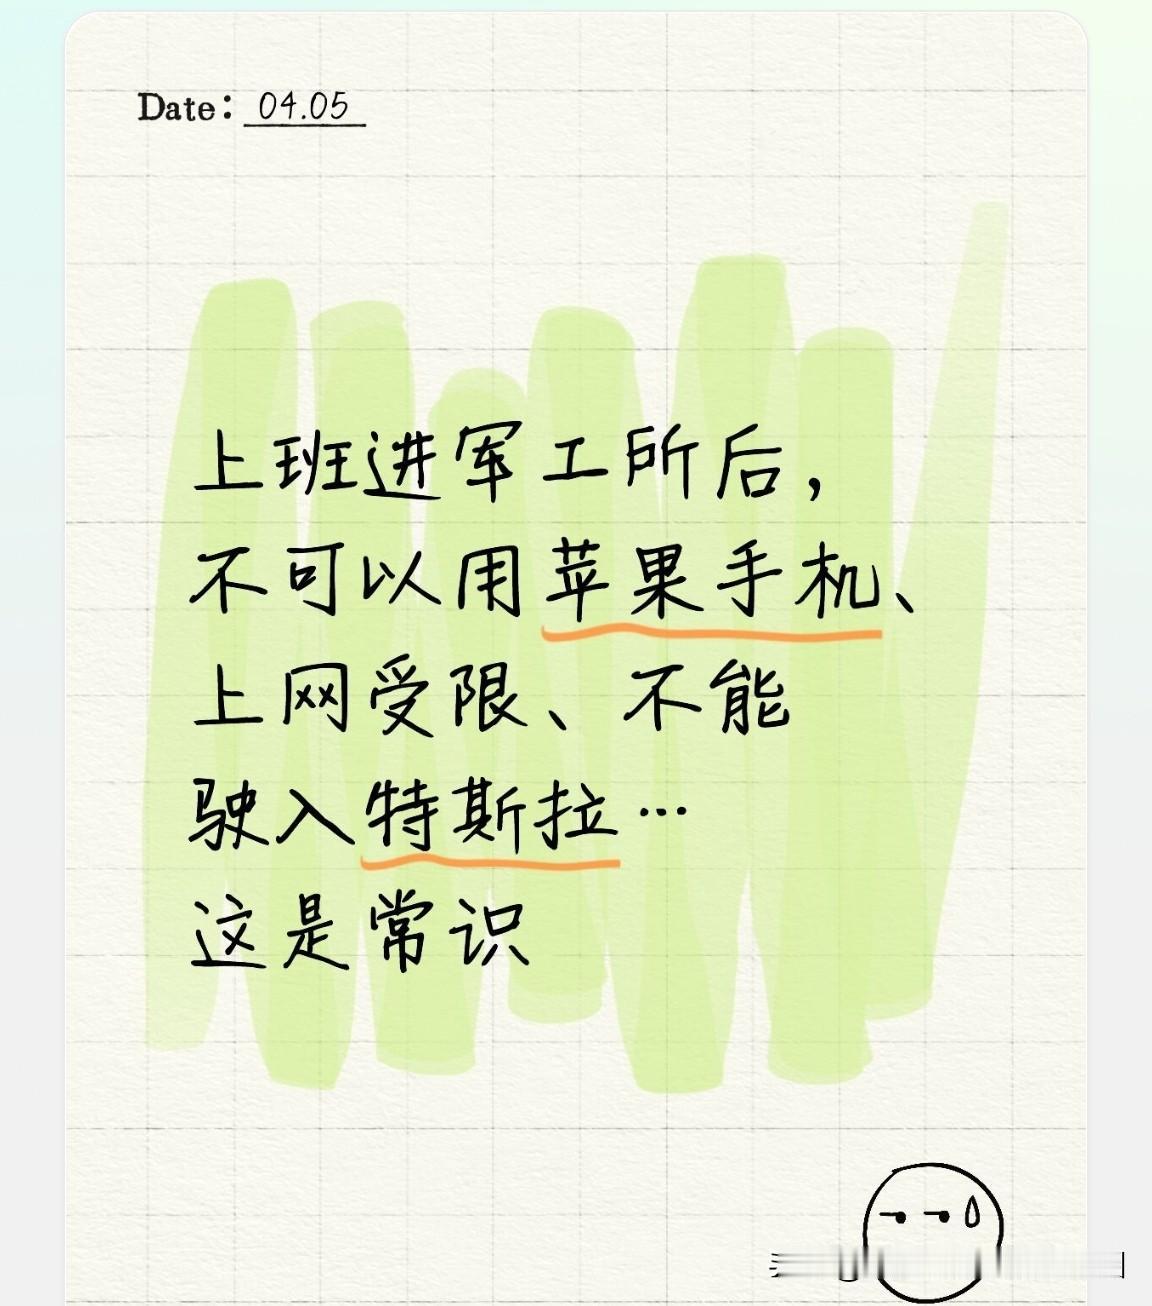 Date: 04.05
上班进军工所后，
不可以用苹果手机、
上网受限、不能
驶入特斯拉…
这是常识